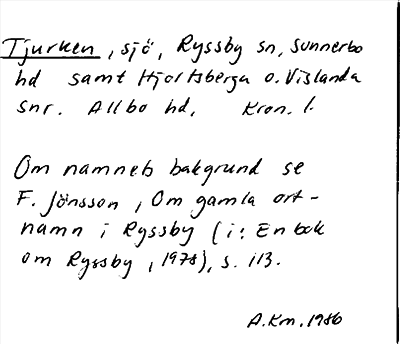 Tjurken, sjö, Ryssby sn, Sunnerbo
hd samt Hjortsberga o. Vislanda
snr. Allbo hd, Kron. l.
Om namnets bakgrund se
F. Jönsson, Om gamla ort-
namn i Ryssby (i: En bok
om Ryssby, 1978), s. 113.
A.Km. 1986